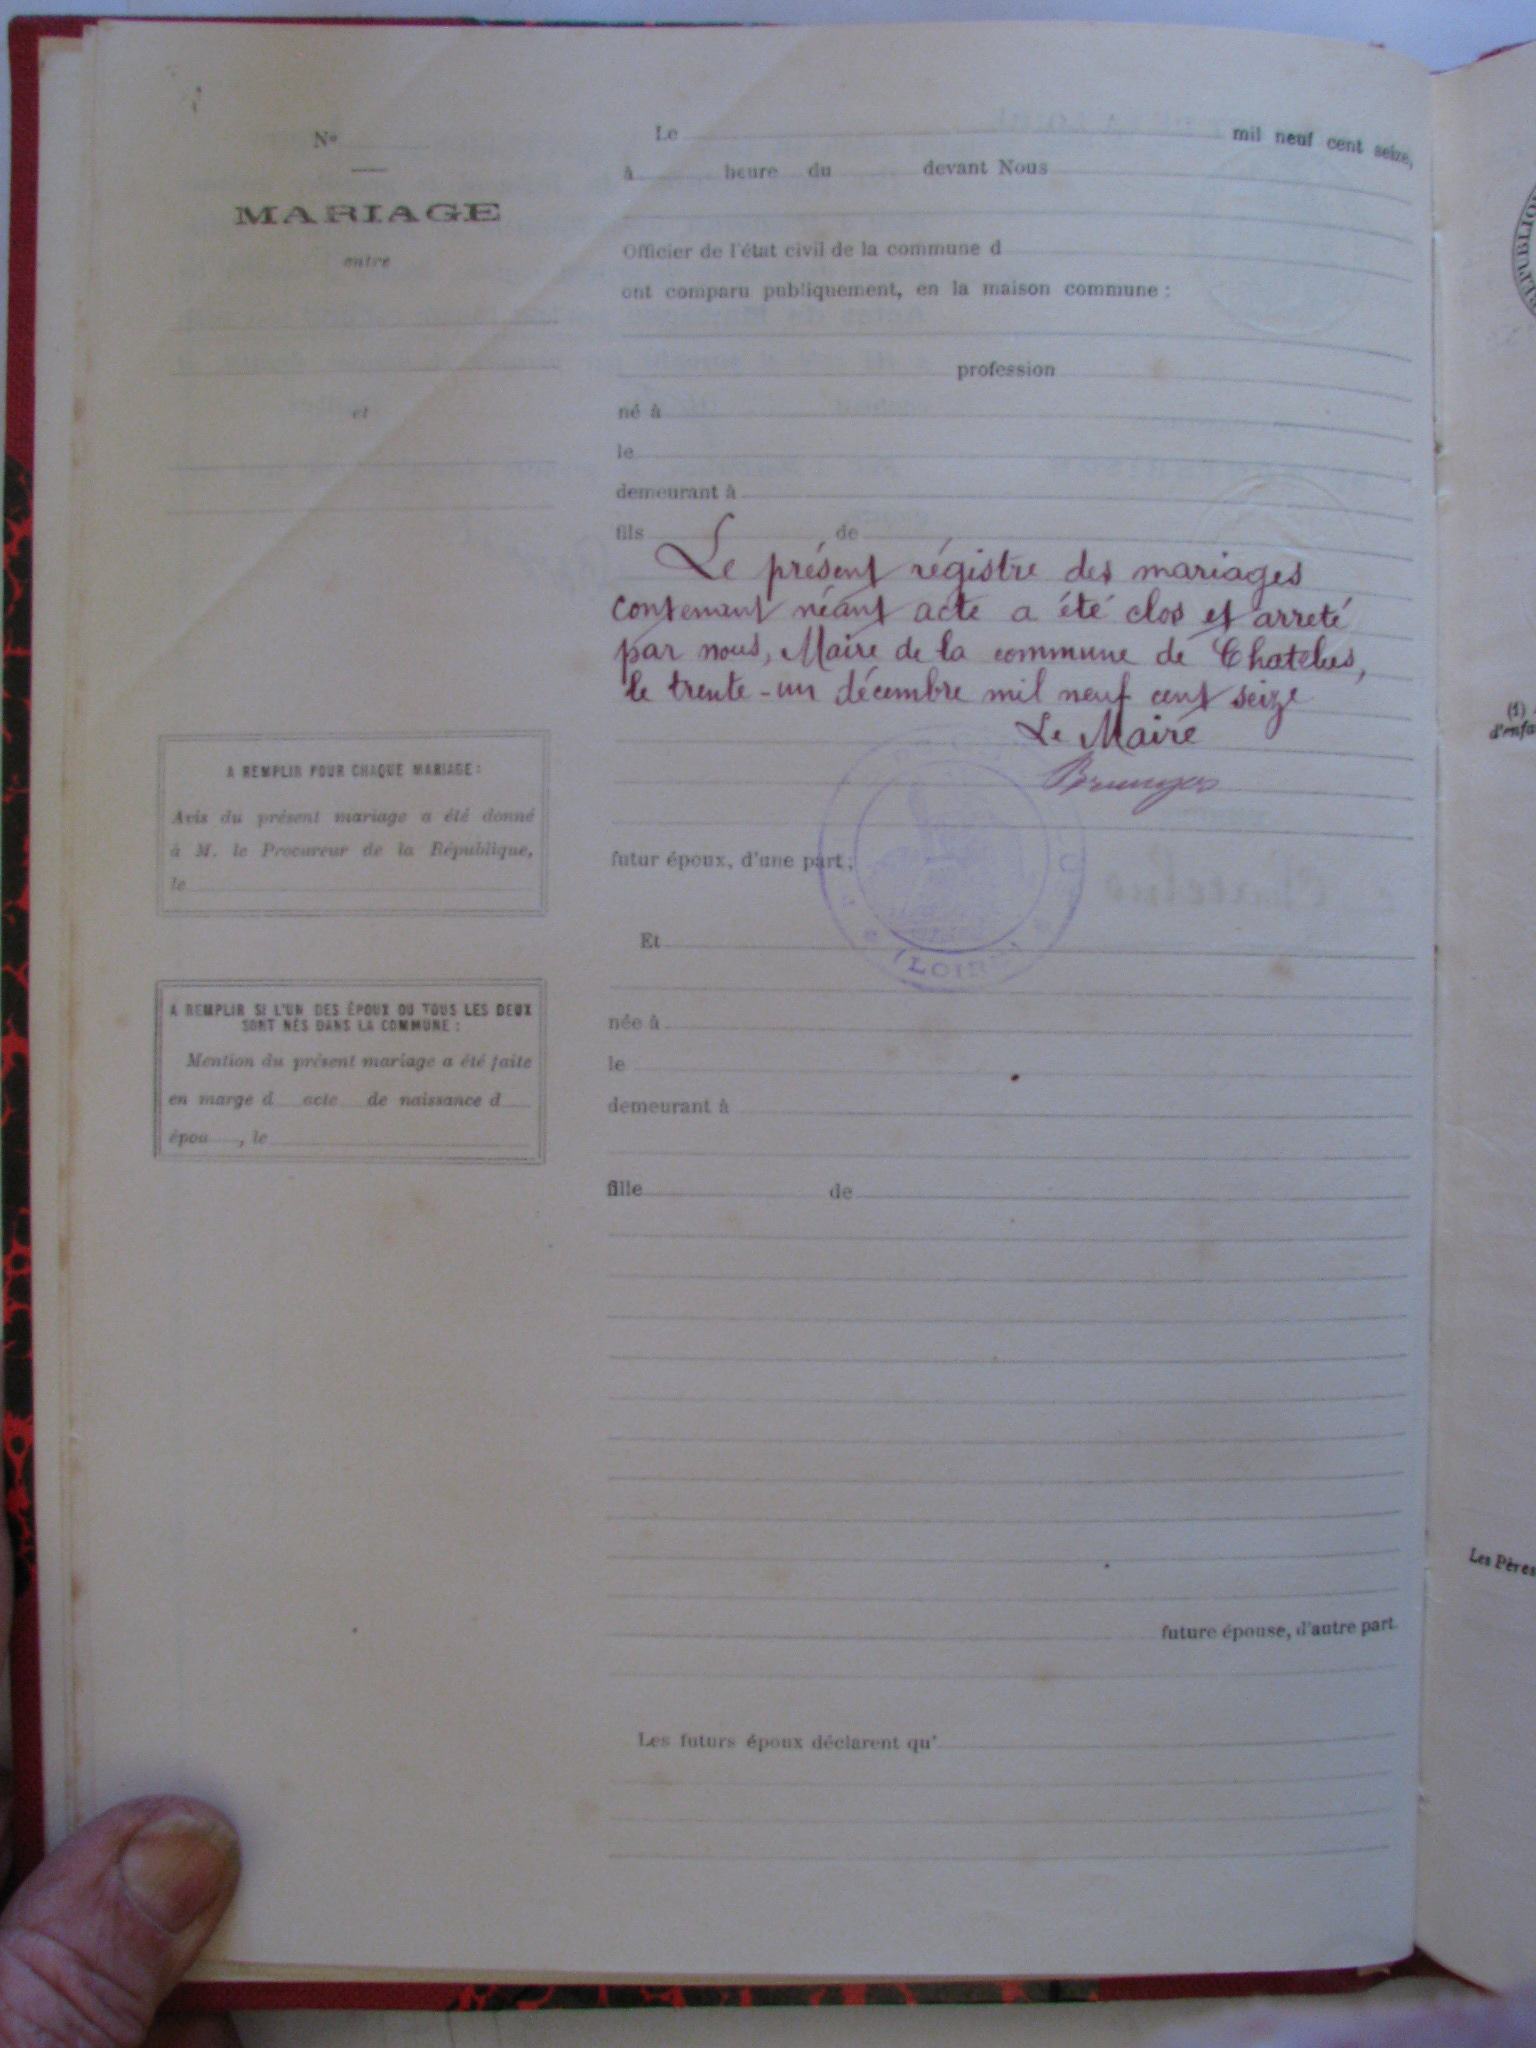 Nº
MARIAGE
entre
et
A REMPLIR POUR CHAQUE MARIAGE :
Avis du présent mariage a été donné
à M. le Procureur de la République,
le
A REMPLIR SI L'UN DES ÉPOUX OU TOUS LES DEUX
SONT NÉS DANS LA COMMUNE :
Mention du présent mariage a été faite
en marge d acte de naissance d
épou , le
Le mil neuf cent seize,
à heure du devant Nous
Officier de l'état civil de la commune d
ont comparu publiquement, en la maison commune :
profession
né à
le
demeurant à
fils de
Le présent régistre des mariages
contenant néant acte a été clos et arreté
par nous, Maire de la commune de Chatelus,
le trente-un décembre mil neuf cent seize
Le Maire
futur époux, d'une part ;
(LOIRE)
Et
née à
le
demeurant à
fille de
future épouse, d'autre part.
Les futurs époux déclarent qu'
(1)
d'enfa
Les Pères